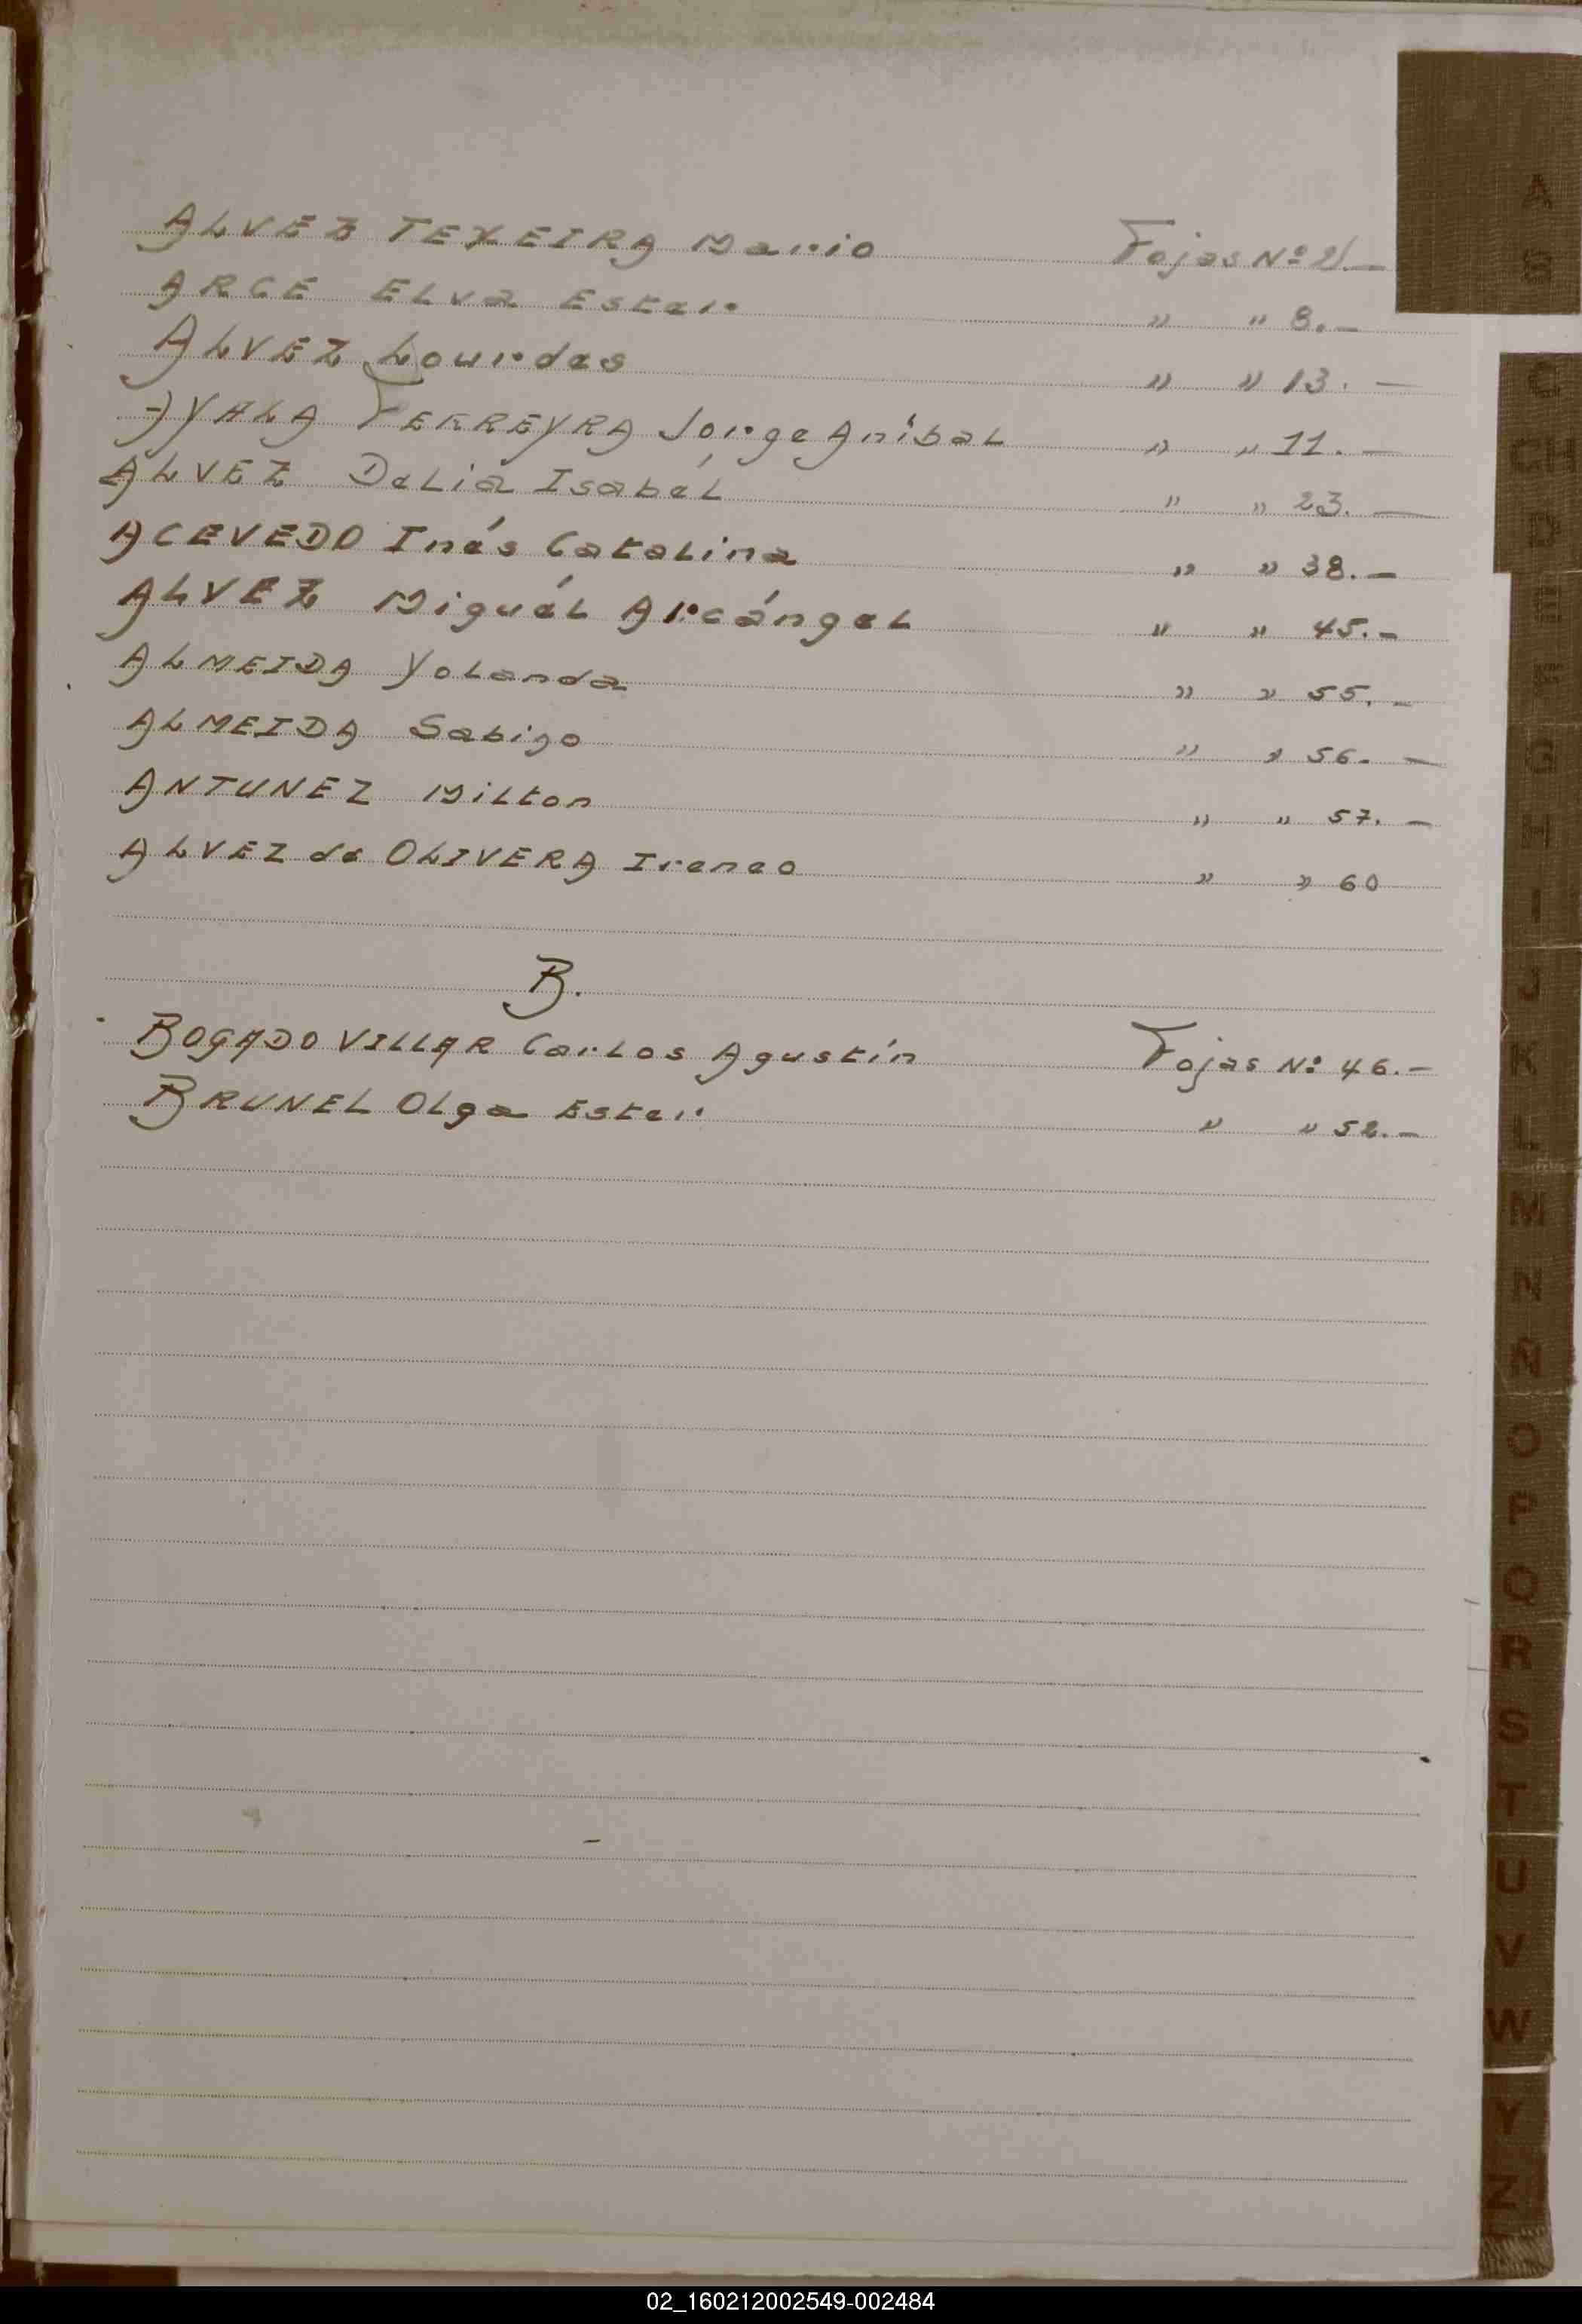 ALVEZ TEXEIRA Mario Fojas Nº 2.—
ARCE ELva Ester " " 8.—
ALVEZ Lourdes " " 13.—
AYALA FERREYRA Jorge Aníbal " " 11.—
ALVEZ Delia Isabél " " 23.—
ACEVEDO Inés Catalina " " 38.—
ALVEZ Miguél Arcángel " " 45.—
ALMEIDA Yolanda " " 55.—
ALMEIDA Sabino " " 56.—
ANTUNEZ Milton " " 57.—
ALVEZ de OLIVERA Ireneo " " 60
B.
BOGADO VILLAR Carlos Agustín Fojas Nº 46.—
BRUNEL Olga Ester " " 52.—
A
B
C
CH
D
E
F
G
H
I
J
K
L
M
N
Ñ
O
P
Q
R
S
T
U
V
W
Y
Z
02_160212002549-002484